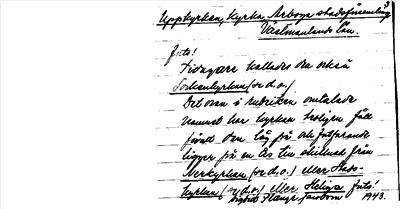 Uppkyrkan, kyrka, Arboga stadsförsamling
Västmanlands län.
Jfts!
Tidigare kallades den också
Sockenkyrkan (se d.o.)
Det ovan i rubriken omtalade
namnet har kyrkan troligen fått
därför att den låg på och fortfarande
ligger på en ås till skillnad från
Nerkyrkan (se d.o.) eller Stads-
kyrkan (se d.o.) eller Heliga
1943.